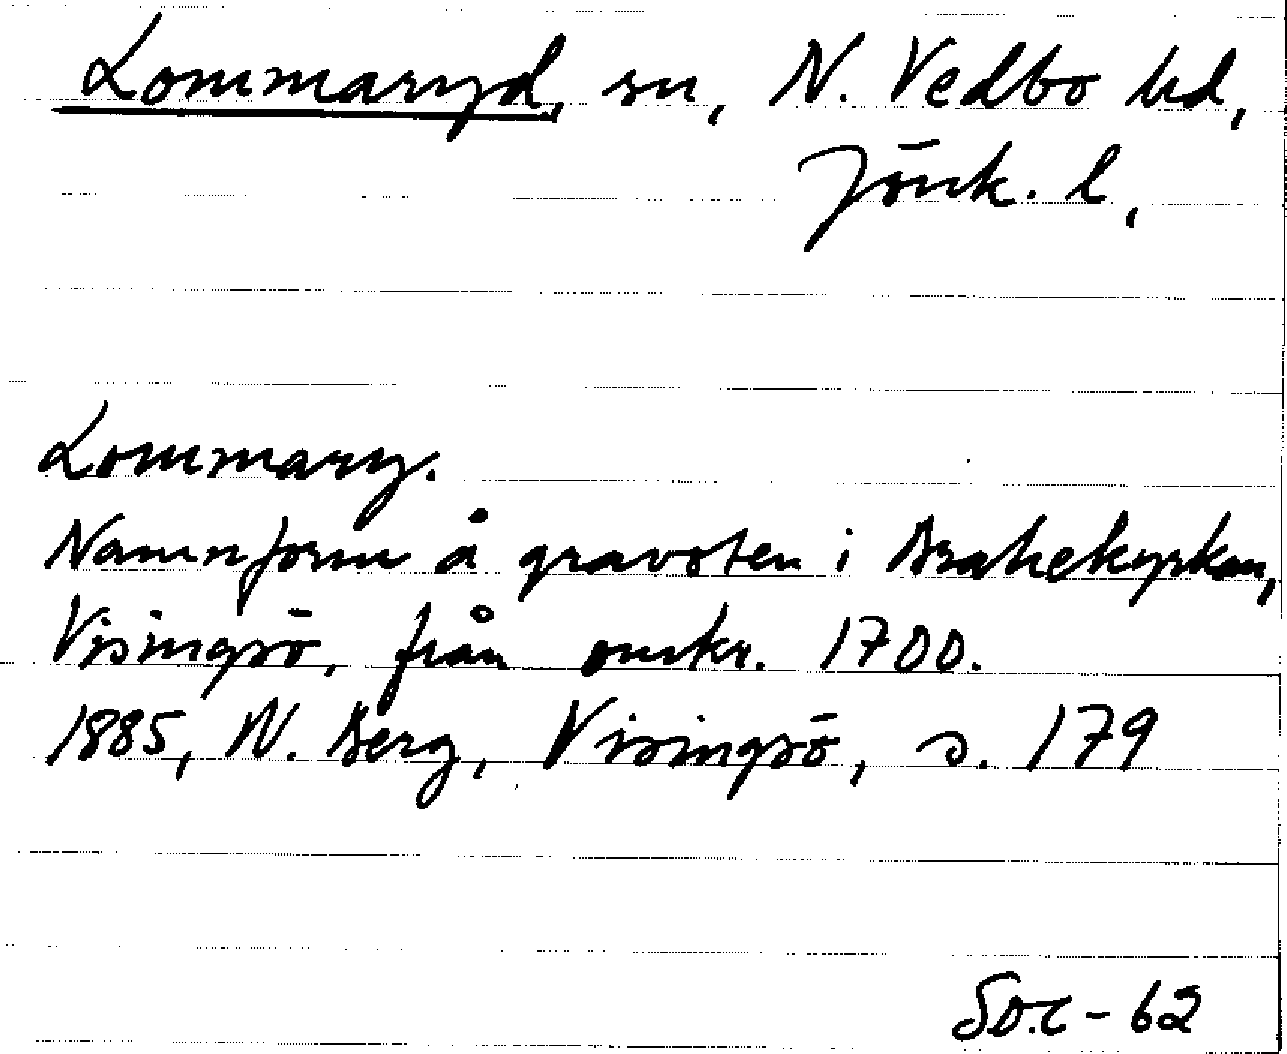 Lommaryd, sn, N. Vedbo hd,
Jönk. l,
Lommary.
Namnform å gravsten i Brahekyrkan,
Visingsö, från omkr. 1700.
1885, W. Berg, Visingsö, s. 179
So.c - 62